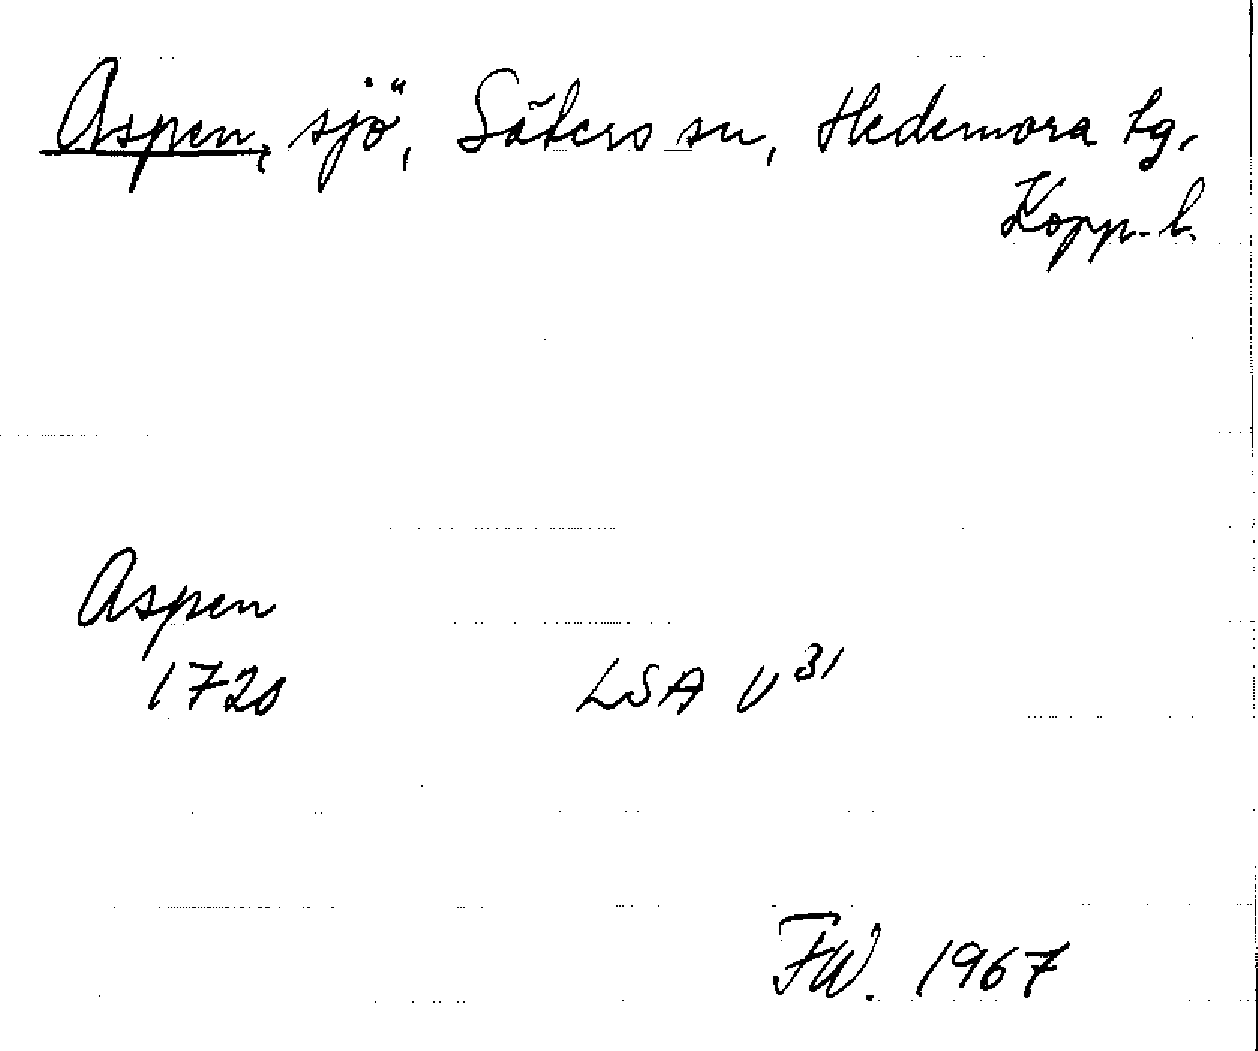 Aspen, sjö, Säters sn, Hedemora tg,
Kopp. l.
Aspen
1720 LSA U³¹
FW. 1967